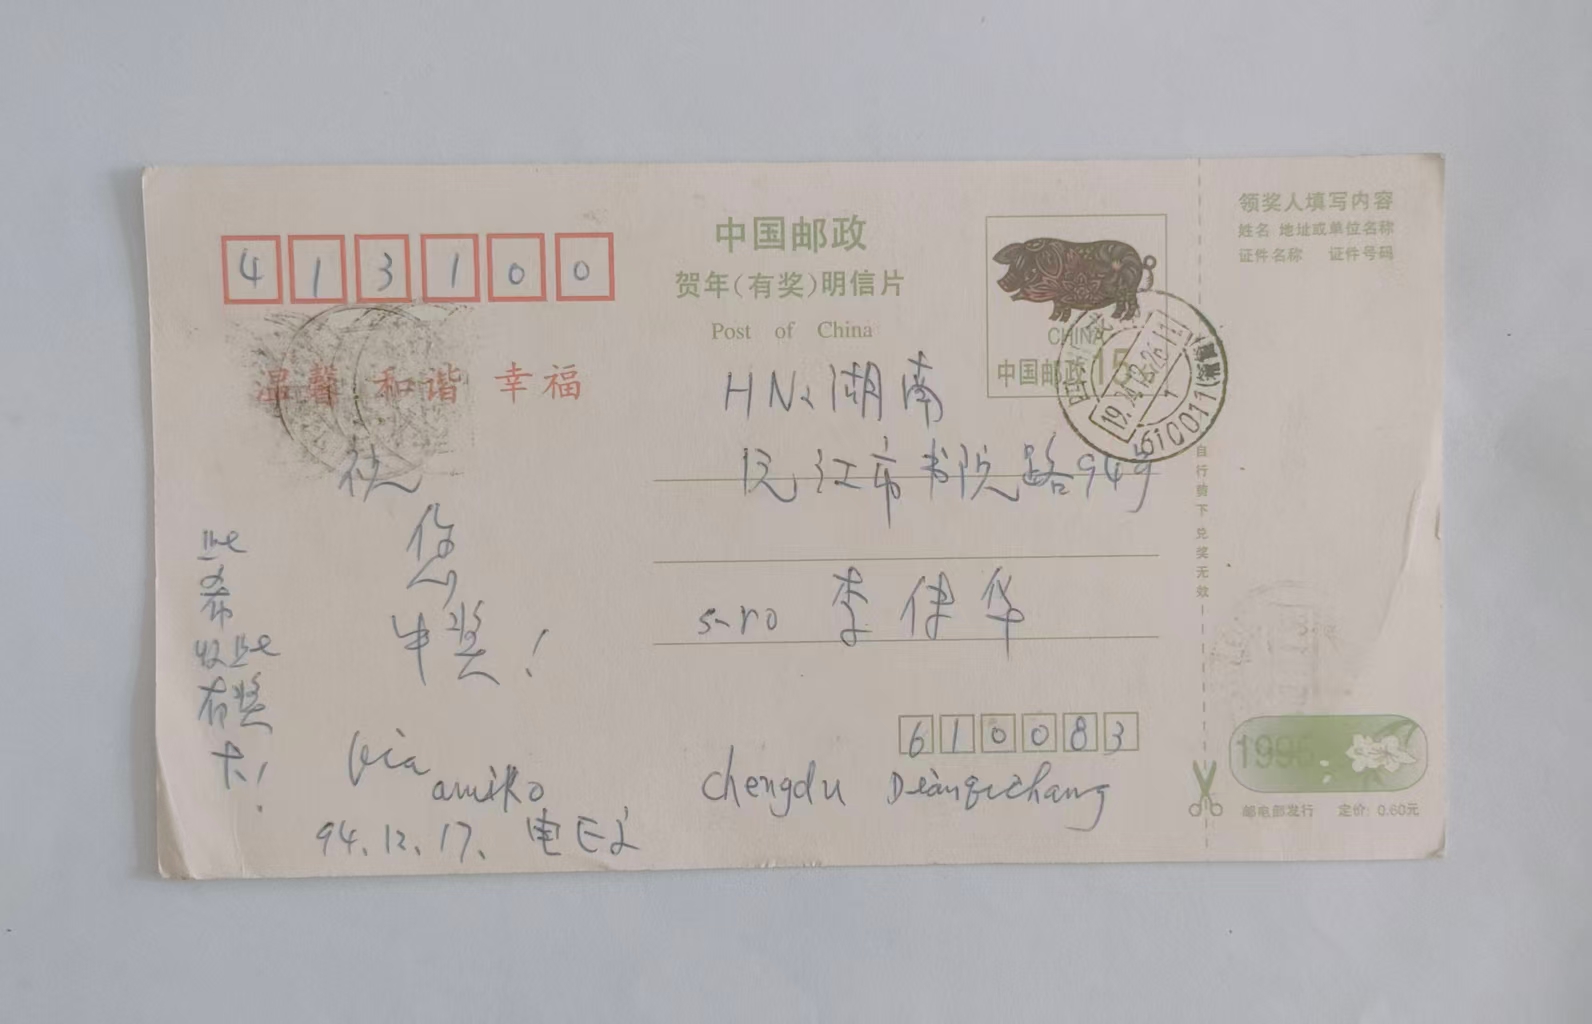 413100
中国邮政
贺年(有奖)明信片
Post of China
CHINA
中国邮政 15
领奖人填写内容
姓名 地址或单位名称
证件名称 证件号码
温馨 和谐 幸福
HN 湖南
沅江市书院路94号
李伟华
祝
您
中奖!
此
希
收此
有奖
卡!
Via
amiko
94.12.17.
610083
chengdu Dianqichang
610011
自行剪下 兑奖无效
1995
邮电部发行 定价:0.60元